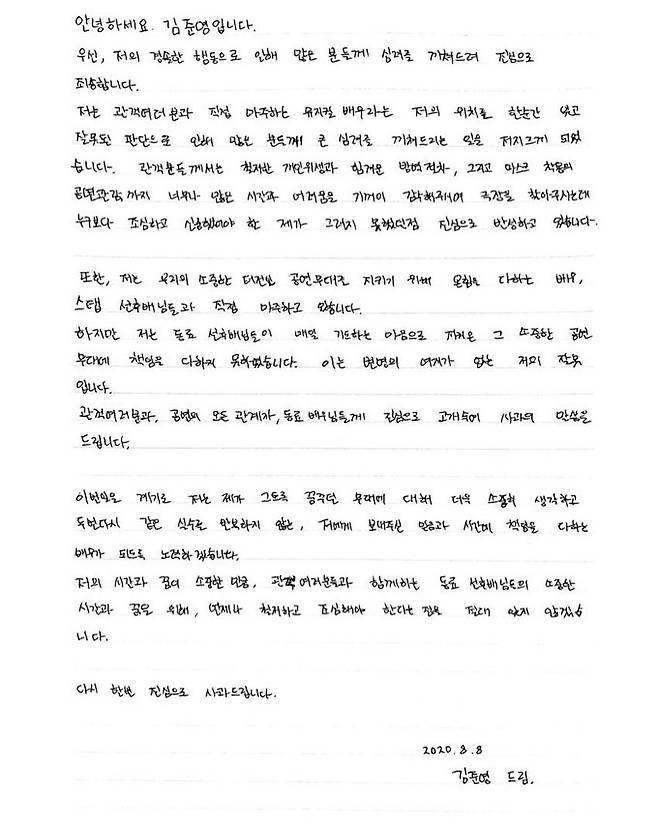 안녕하세요. 김준영입니다.
우선, 저의 경솔한 행동으로 인해 많은 분들께 심려를 끼쳐드려 진심으로
죄송합니다.
저는 관객여러분과 직접 마주하는 뮤지컬 배우라는 저의 위치를 한순간 잊고
잘못된 판단으로 인해 많은 분들께 큰 심려를 끼쳐드리는 일을 저지르게 되었
습니다. 관객분들께서는 철저한 개인위생과 힘겨운 방역절차, 그리고 마스크 착용의
공연관람까지 너무나 많은 시간과 어려움을 기꺼이 감내해주시어 극장을 찾아주시는데
누구보다 조심하고 신중했어야 한 제가 그러지 못했던점 진심으로 반성하고 있습니다.
또한, 저는 우리의 소중한 터전인 공연무대를 지키기 위해 온힘을 다하는 배우,
스탭 선후배님들과 직접 마주하고 있습니다.
하지만 저는 동료 선후배님들이 매일 기도하는 마음으로 지켜온 그 소중한 공연
무대에 책임을 다하지 못하였습니다. 이는 변명의 여지가 없는 저의 잘못
입니다.
관객여러분과, 공연의 모든 관계자, 동료 배우님들께 진심으로 고개숙여 사과의 말씀을
드립니다.
이번일을 계기로 저는 제가 그토록 꿈꾸던 무대에 대해 더욱 소중히 생각하고
두번다시 같은 실수를 반복하지 않는, 저에게 보내주신 믿음과 시간에 책임을 다하는
배우가 되도록 노력하겠습니다.
저의 시간과 꿈이 소중한 만큼, 관객여러분들과 함께하는 동료 선후배님들의 소중한
시간과 꿈을 위해, 언제나 철저하고 조심해야 한다는 점을 절대 잊지 않겠습
니다.
다시 한번 진심으로 사과드립니다.
2020. 8. 8
김준영 드림.